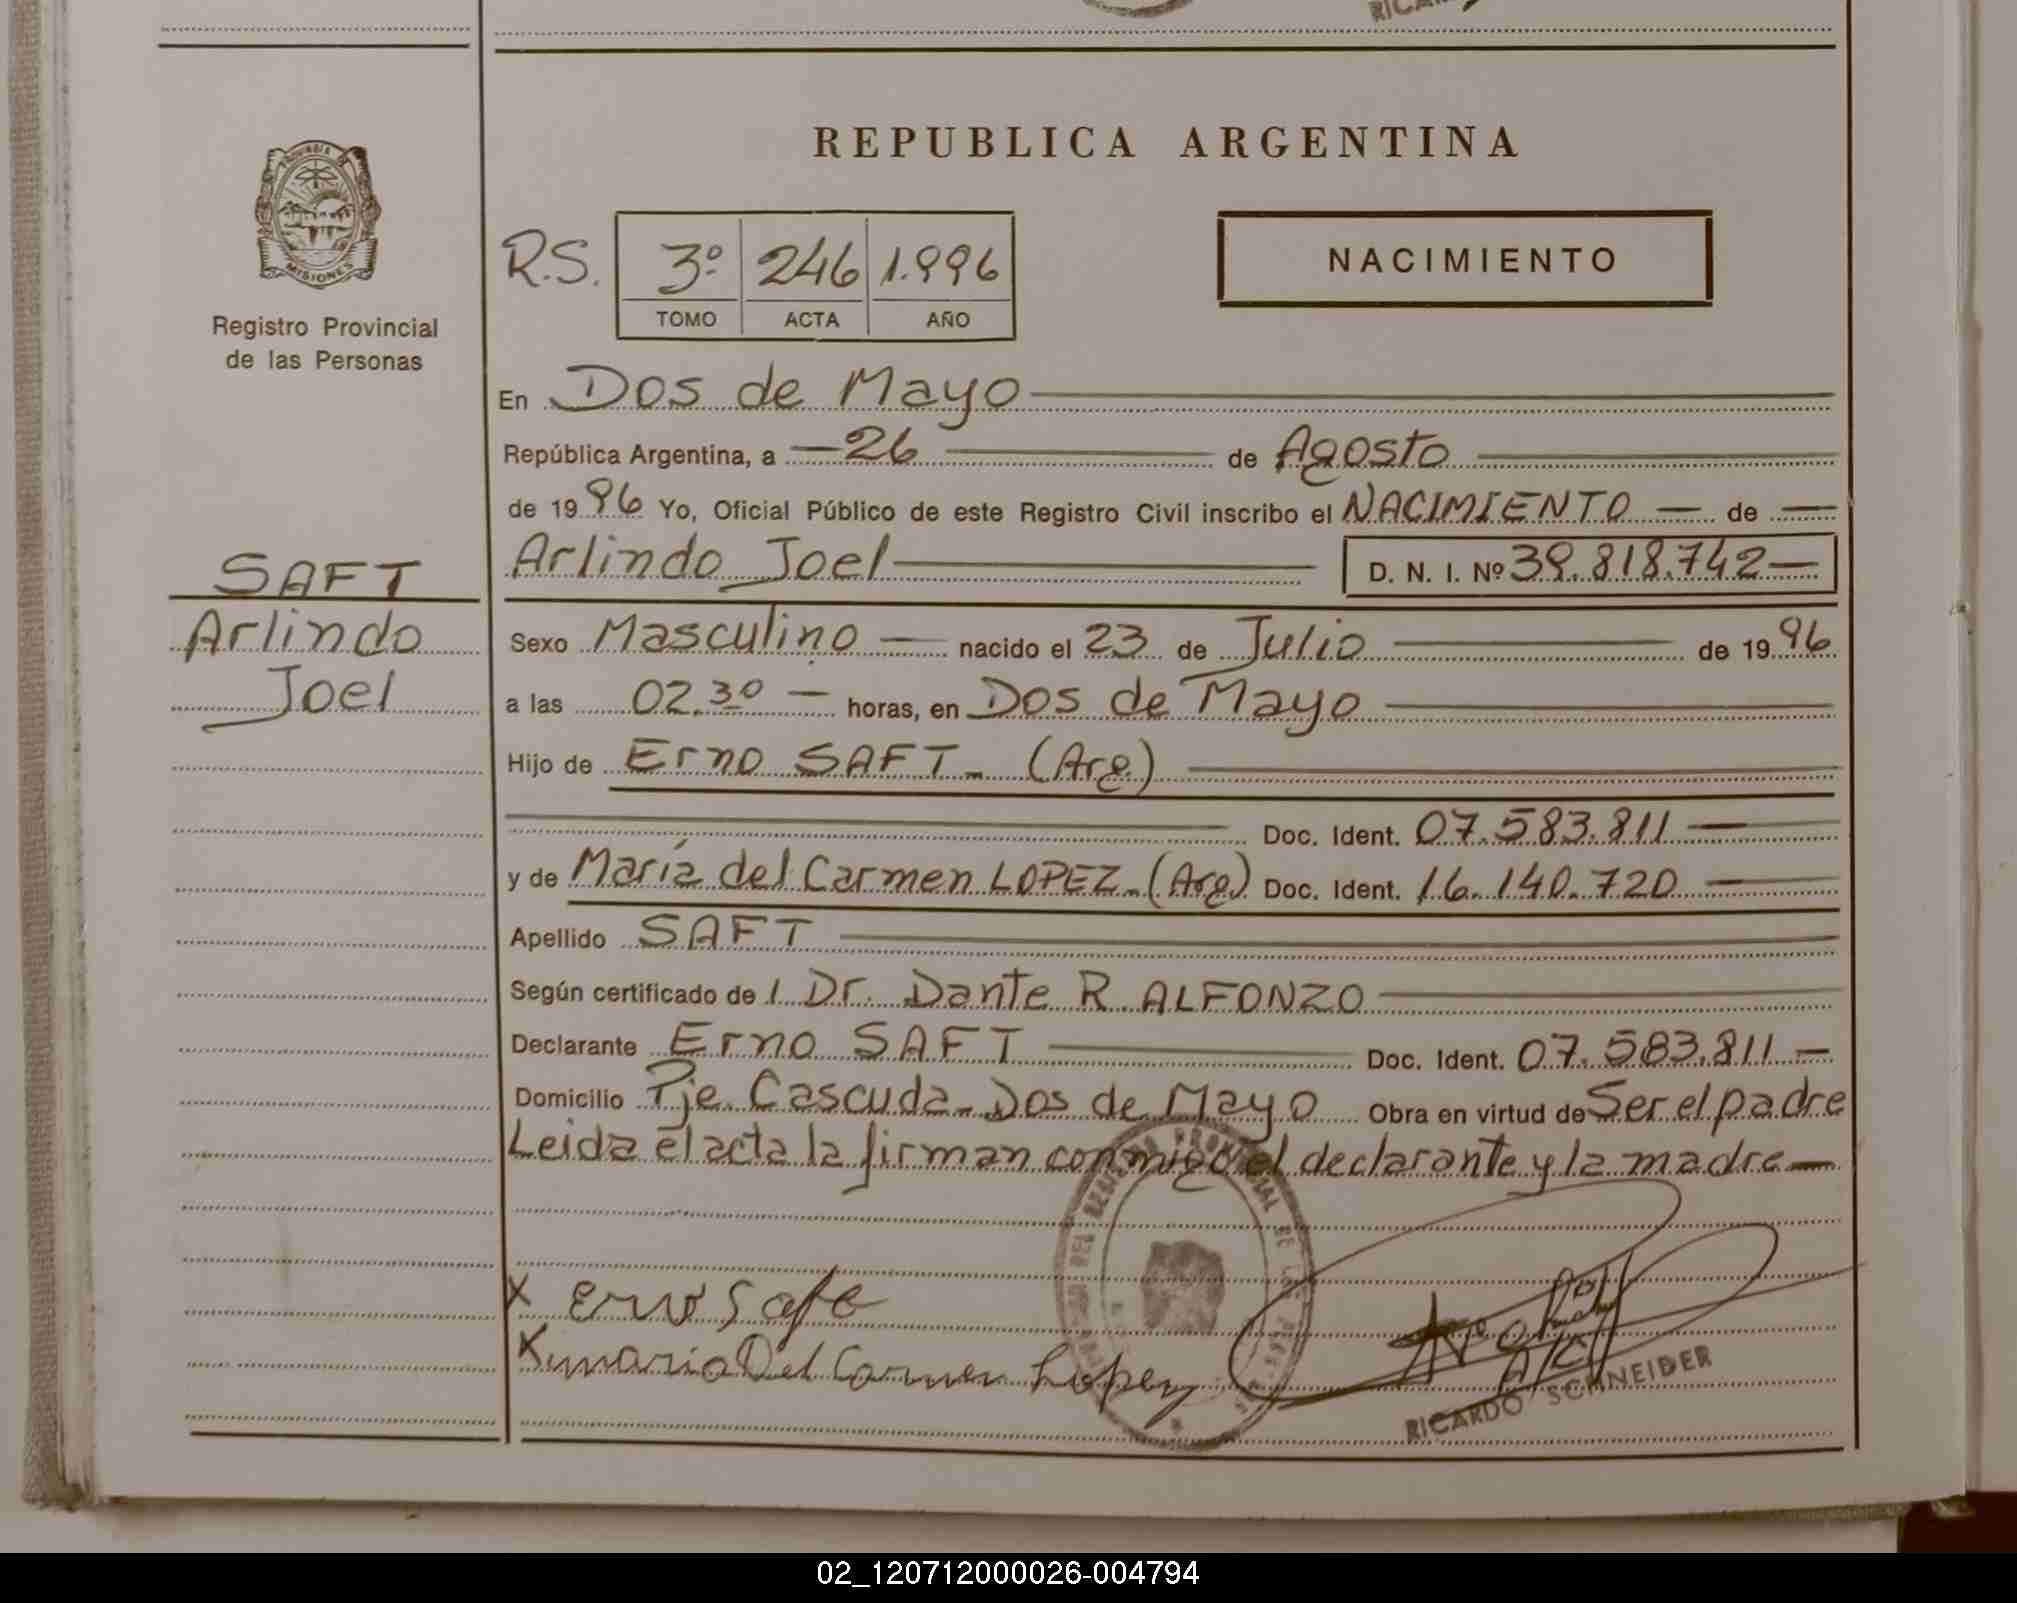 REPUBLICA ARGENTINA
PROVINCIA DE
MISIONES
Registro Provincial
de las Personas
R.S. 3º 246 1.996
TOMO ACTA AÑO
NACIMIENTO
En Dos de Mayo
República Argentina, a 26 de Agosto
de 1996 Yo, Oficial Público de este Registro Civil inscribo el NACIMIENTO de
Arlindo Joel D. N. I. Nº 39.818.742
SAFT
Arlindo
Joel
Sexo Masculino nacido el 23 de Julio de 1996
a las 02.30 horas, en Dos de Mayo
Hijo de Erno SAFT (Arg)
Doc. Ident. 07.583.811
y de María del Carmen LOPEZ (Arg) Doc. Ident. 16.140.720
Apellido SAFT
Según certificado de l Dr. Dante R ALFONZO
Declarante Erno SAFT Doc. Ident. 07.583.811
Domicilio Pje. Cascuda Dos de Mayo Obra en virtud de Ser el padre
Leida el acta la firman conmigo el declarante y la madre
X Erno Saft
X maria Del Carmen Lopez
RICARDO SCHNEIDER
02_120712000026-004794